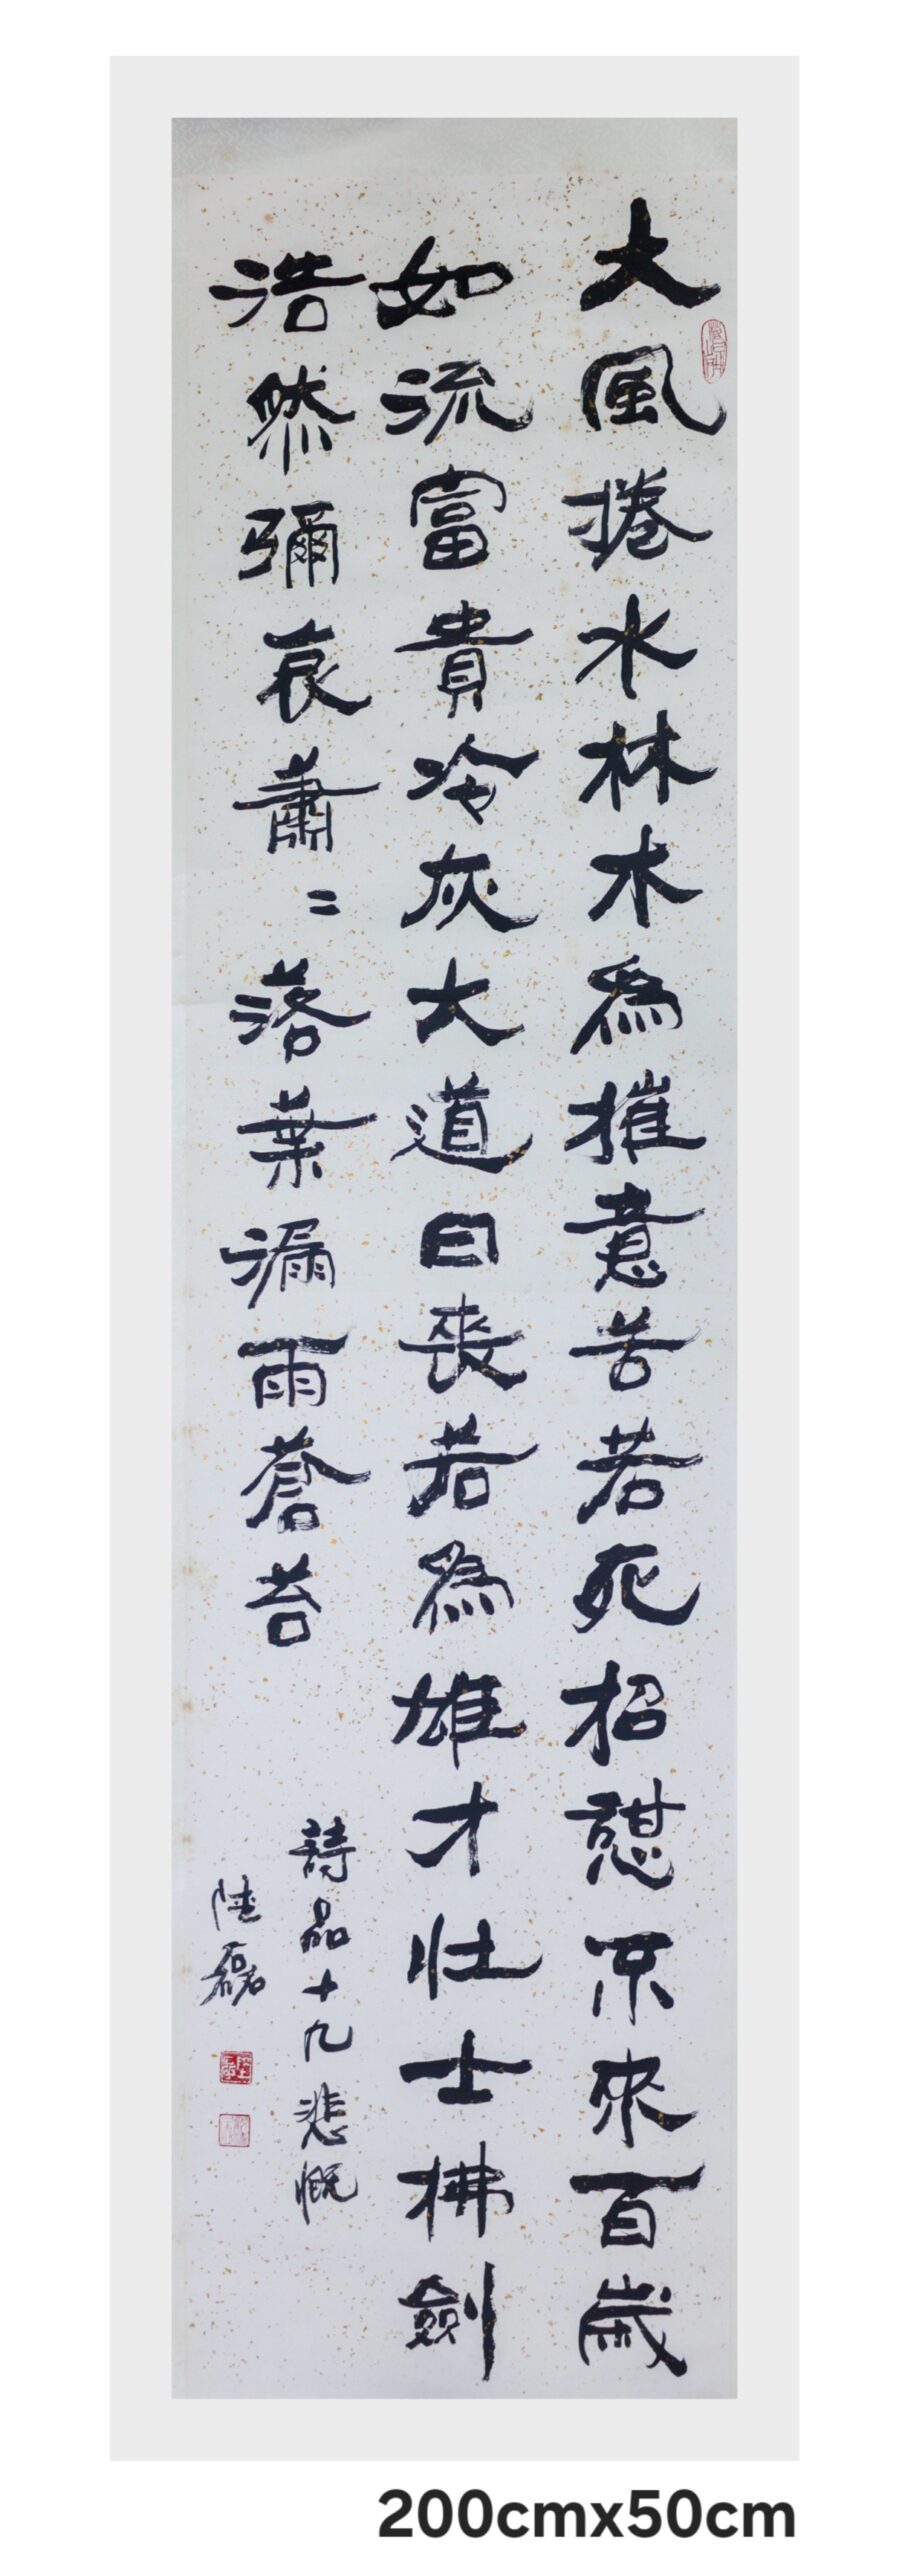 大風捲水林木為摧意苦若死招憩不來百歲
如流富貴冷灰大道日喪若為雄才壯士拂劍
浩然彌哀蕭〻落葉漏雨蒼苔
詩品十九悲慨
陸磊
200cmx50cm